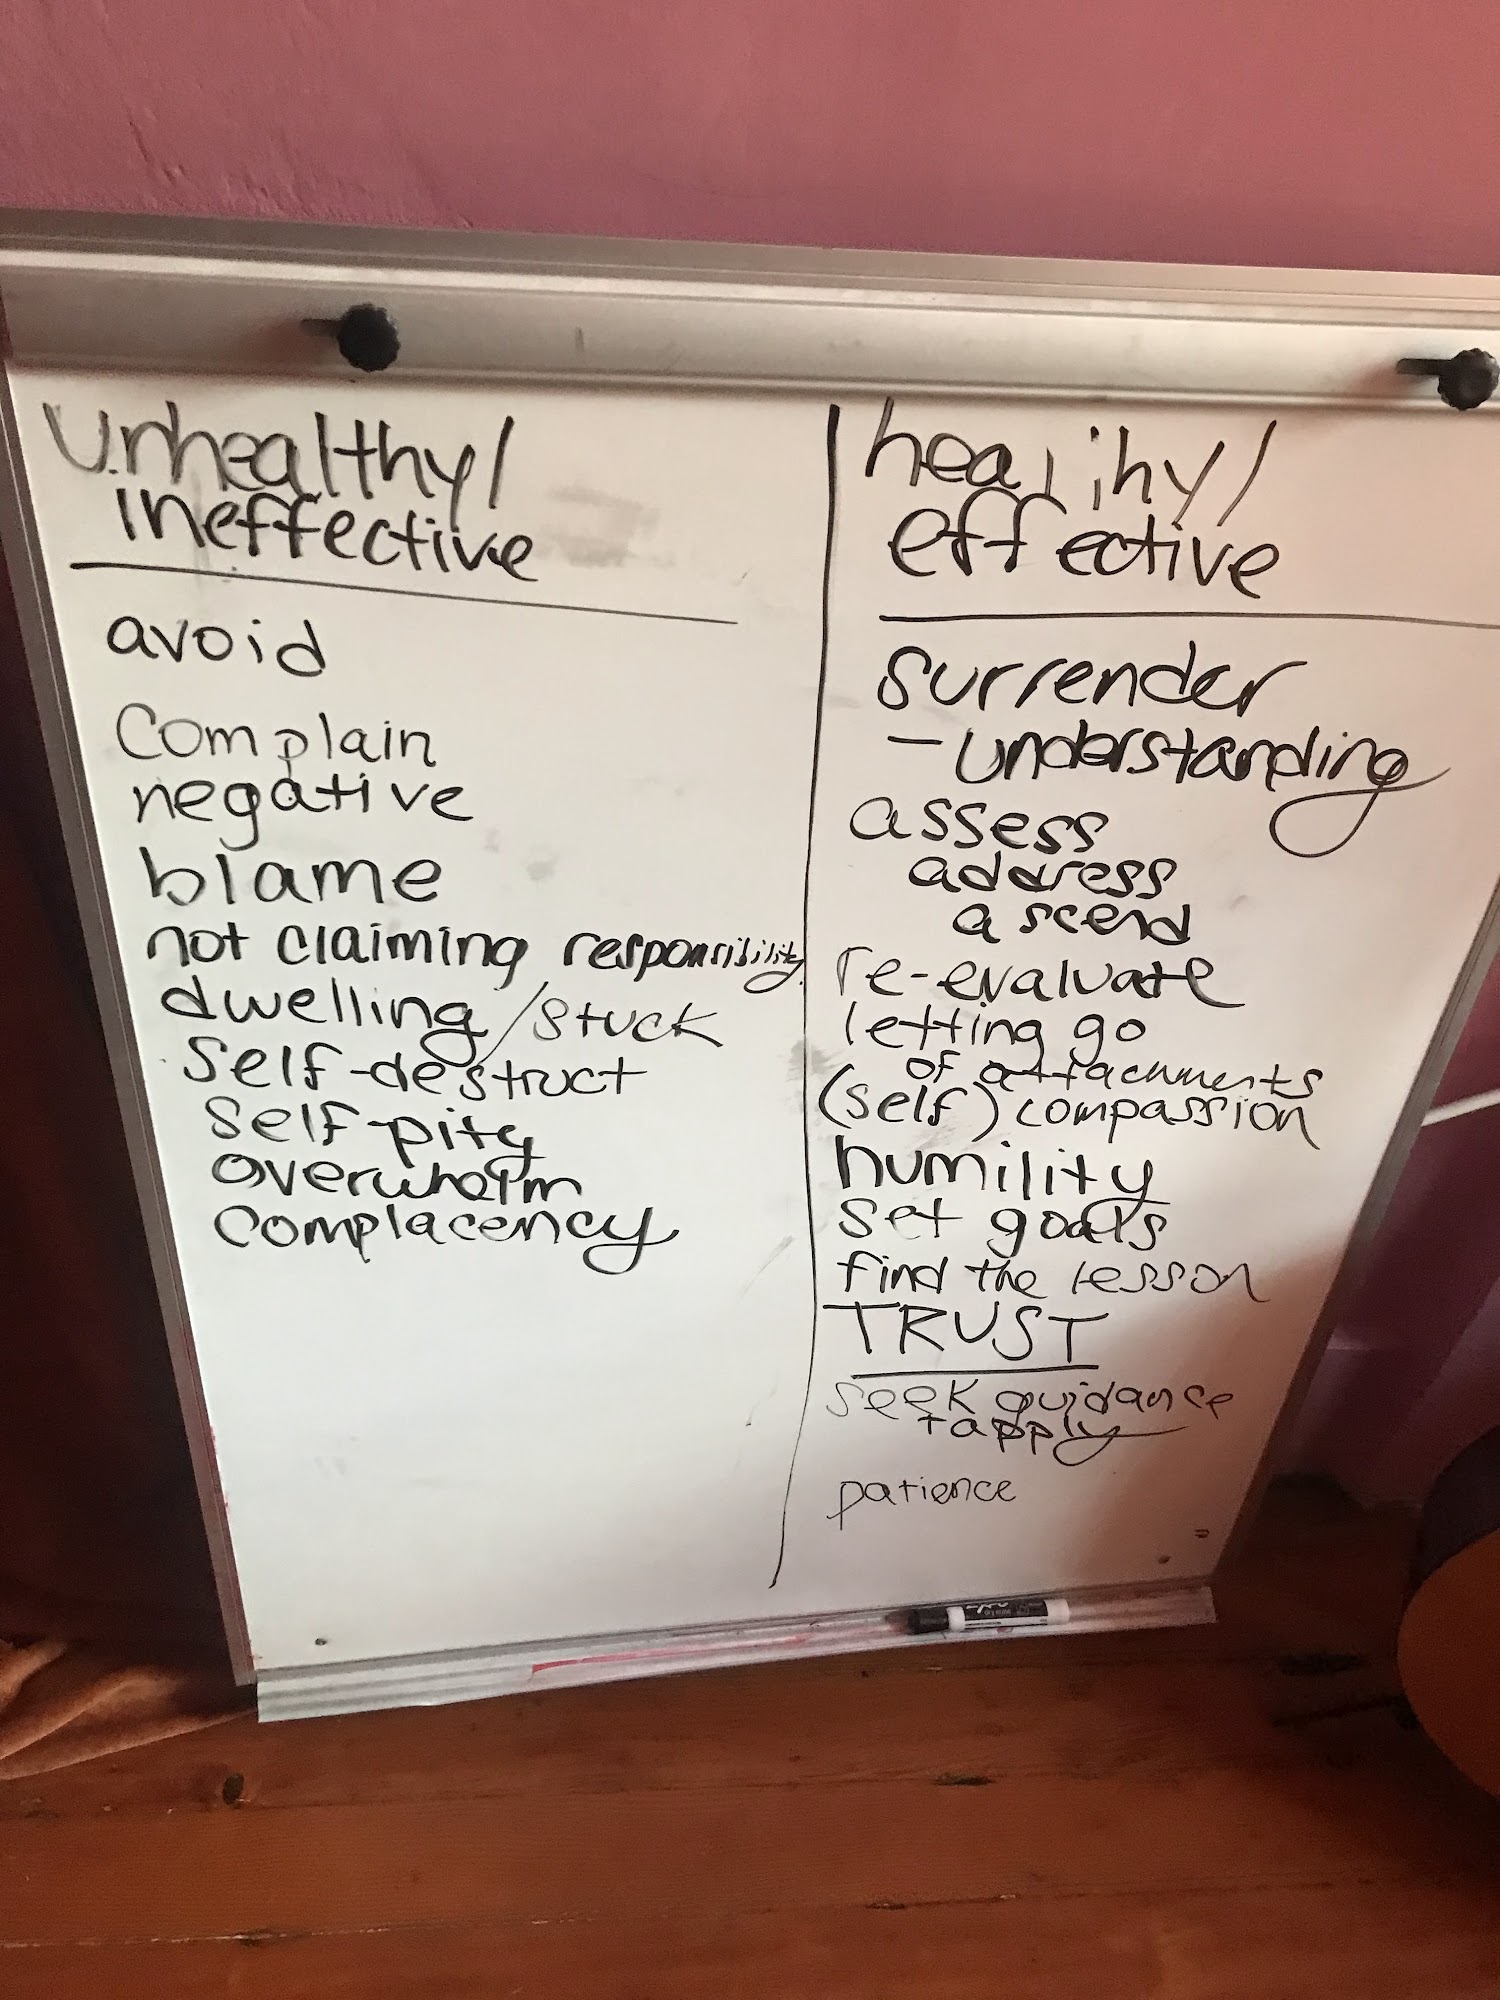 unhealthy/
ineffective
avoid
complain
negative
blame
not claiming responsibility
dwelling/stuck
self-destruct
self-pity
overwhelm
complacency
healthy/
effective
surrender
- understanding
assess
address
ascend
re-evaluate
letting go
of attachments
(self) compassion
humility
set goals
find the lesson
TRUST
seek guidance
+ apply
patience